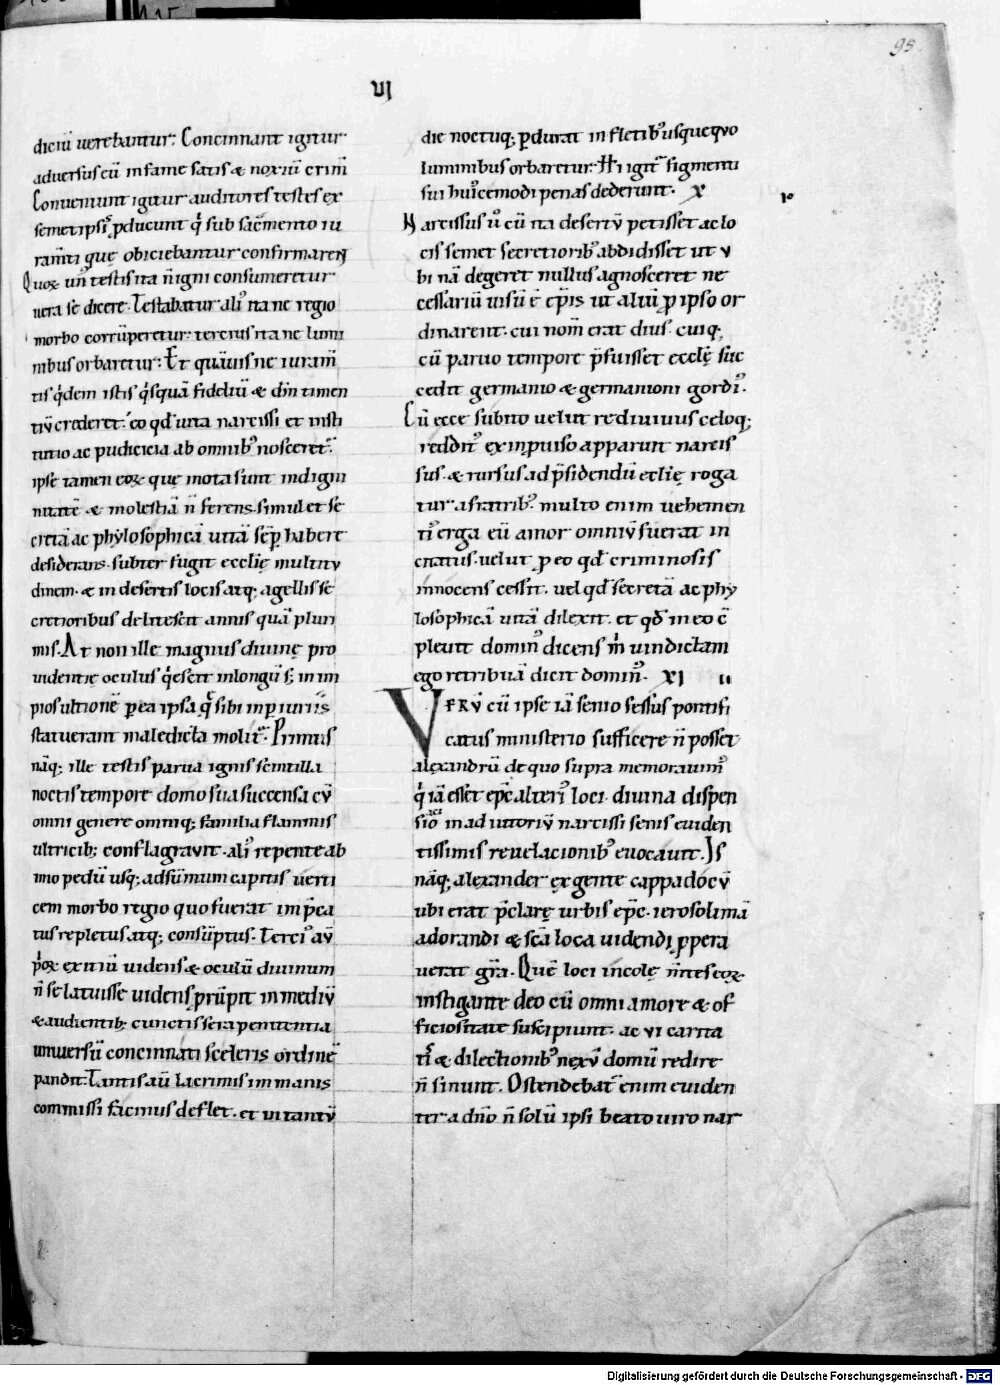 98
VI
diciū uerebantur: Concinnant igitur
aduersus eū infame satis & noxiū crim̄
Conueniunt igitur auditores testes ex
semetipsis ꝓducunt qͥ sub sac̄mento iu
ram̄ti que obiciebantur confirmarent
Quoꝝ un᾽ testis ita n̄ igni consumeretur
uera se dicere. Testabatur ali᾽ ita ne regio
morbo corrūperetur: tercius ita ne lumi
nibus orbaretur: Et quāuis ne iuram̄
tis qͥdem istis qͥsquā fideliū & dn̄m timen
tiū crederet. eo qd̄ uita narcissi et insti
tutio ac pudicicia ab omnib᾽ nosceret᾽.
ipse tamen eoꝝ que mota sunt indigni
tatē & molestiā n̄ ferens. simul et se
cretā ac phylosophicā uitā semp̄ habere
desiderans. subter fugit ecclię multitu
dinem. & in desertis locis atq; agellis se
cretioribus delitescit annis quā pluri
mis. At non ille magnus diuinę pro
uidentię oculus qͥescit in longū s; in im
pios ultionē ꝑ ea ipsa qͥ sibi in periuriis
statuerant maledicta molit᾽. Primus
nāq; ille testis parua ignis scintilla
noctis tempore domo sua succensa cū
omni genere omniq; familia flammis
ultricib; conflagrauit. ali᾽ repente ab
imo pedū usq; ad sūmum capitis uerti
cem morbo regio quo fuerat imp̄ca
tus repletus atq; consūptus. Terci᾽ aū
pͥoꝝ exitiū uidens & oculū diuinum
n̄ se latuisse uidens prūpit in mediū
& audientib; cunctis sera penitentia
uniuersū concinnati sceleris ordinē
pandit. Tantis aū lacrimis immanis
commissi facinus deflet. et ui tantū
die noctuq; ꝑdurat in fletib᾽ usquequo
luminibus orbaretur. Hi igit᾽ figmenti
sui hui᾽cemodi penas dederunt. X
10
Narcissus u᾽ cū ita desertū petisset ac lo
cis semet secretiorib᾽ abdidisset ut u
bi nā degeret nullus agnosceret ne
cessariū uisū ē ep̄is ut aliū ꝓ ipso or
dinarent. cui nom̄ erat dius. cuiq;
cū paruo tempore p̄fuisset ecclę suc
cedit germanio & germanioni gordi᾽.
Cū ecce subito uelut rediuiuus celoq;
reddit᾽ ex inpuiso apparuit narcis
sus. & rursus ad p̄sidendū ecclię roga
tur a fratrib᾽. multo enim uehemen
ti᾽ erga eū amor omniū fuerat in
citatus. uelut ꝓ eo qd̄ criminosis
innocens cessit. uel qd̄ secretā ac phy
losophicā uitā dilexit. et qd̄ in eo cō
pleuit domin᾽ dicens m̄ uindictam
ego retribuā dicit domin᾽. XI 11
Verū cū ipse iā senio fessus pontifi
catus ministerio sufficere n̄ posset
alexandrū de quo supra memorauim᾽
qͥ iā esset ep̄c alteri᾽ loci. diuina dispen
satio in adiutoriū narcissi senis euiden
tissimis reuelacionib᾽ euocauit. Is
nāq; alexander ex gente cappadocū
ubi erat p̄clarę urbis ep̄c. ierosolimā
adorandi & sc̄a loca uidendi ꝓpera
uerat gr̄a. Quē loci incolę n̄ntes eoꝝ
instigante deo cū omni amore & of
ficiositate suscipiunt. ac ui carita
tis & dilectionib᾽ nexū domū redire
n̄ sinunt. Ostendebat᾽ enim euiden
ter a dn̄o n̄ solū ipsi beato uiro nar
Digitalisierung gefördert durch die Deutsche Forschungsgemeinschaft - DFG